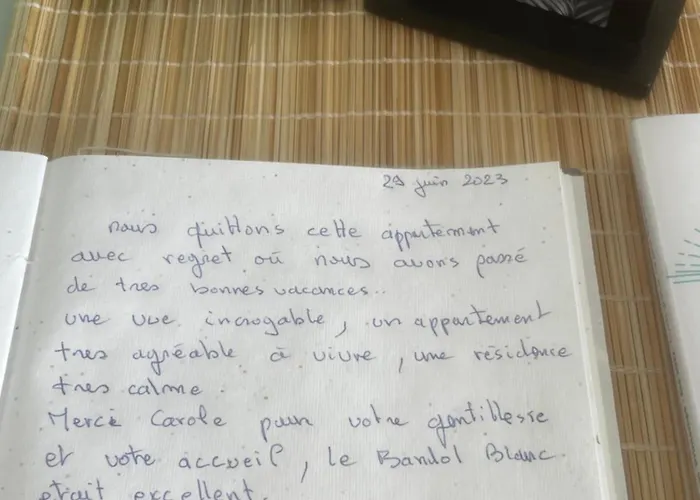 29 juin 2023
nous quittons cette appartement
avec regret où nous avons passé
de tres bonnes vacances..
une vue incroyable, un appartement
tres agréable à vivre, une résidence
tres calme.
Merci Carole pour votre gentillesse
et votre accueil, le Bandol Blanc
etait excellent.